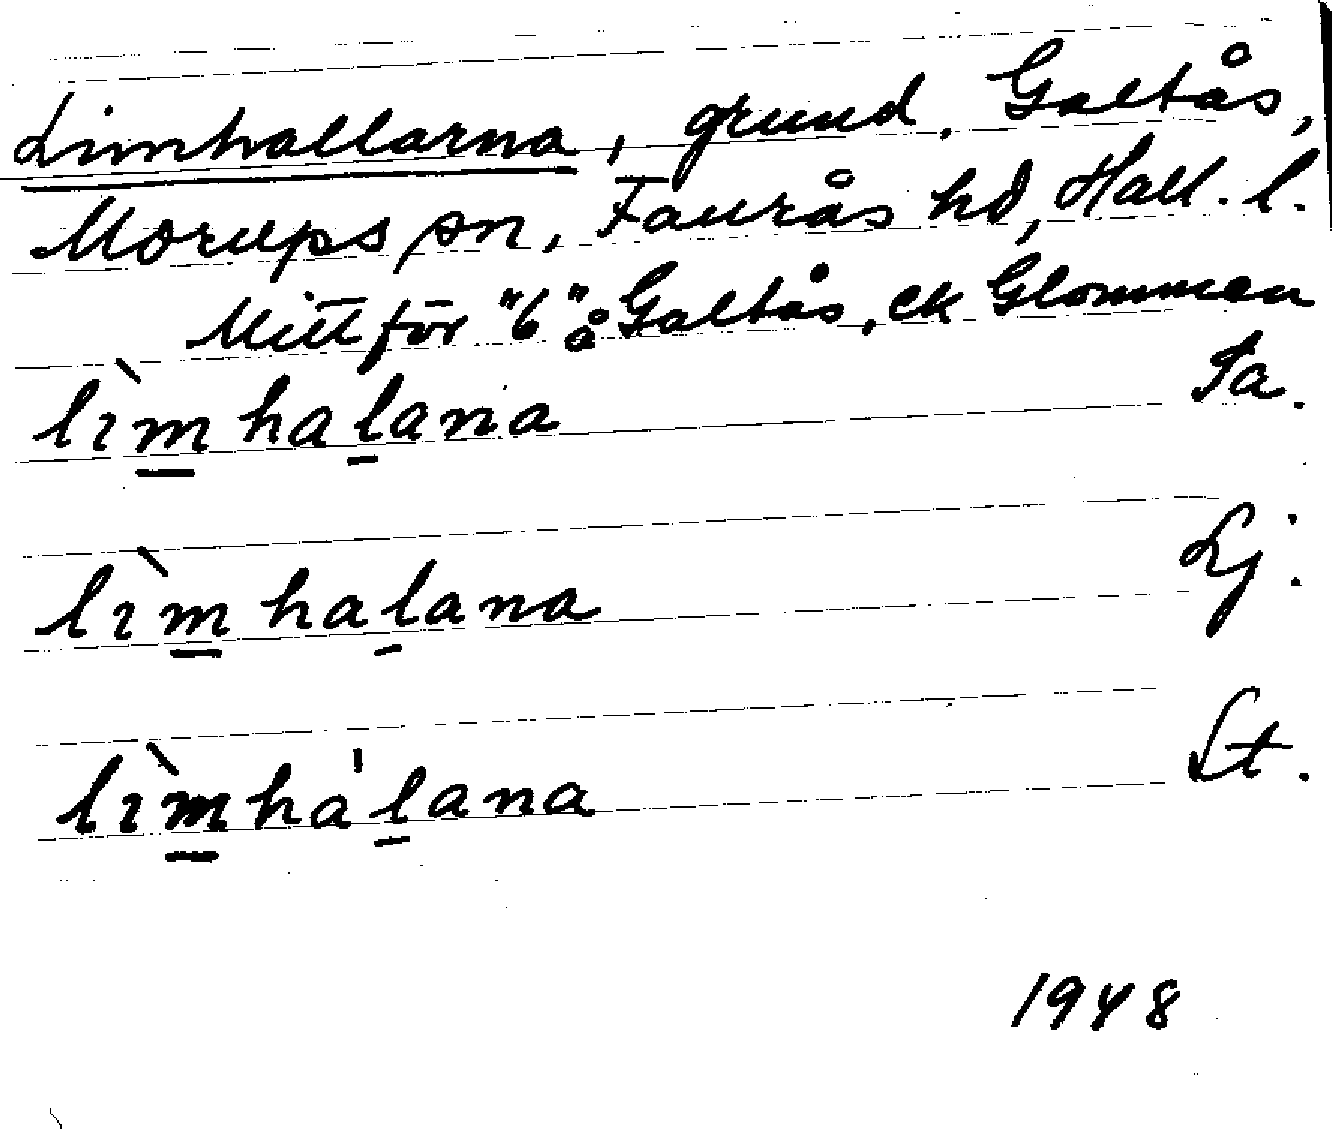 Limhallarna, grund, Galtås,
Morups sn, Faurås hd, Hall. l.
Mitt för "6" å Galtås, ek Glommen
lìm̲hal̲ana Sa.
lìm̲hal̲ana Lj.
lìm̲ha'l̲ana St.
1948